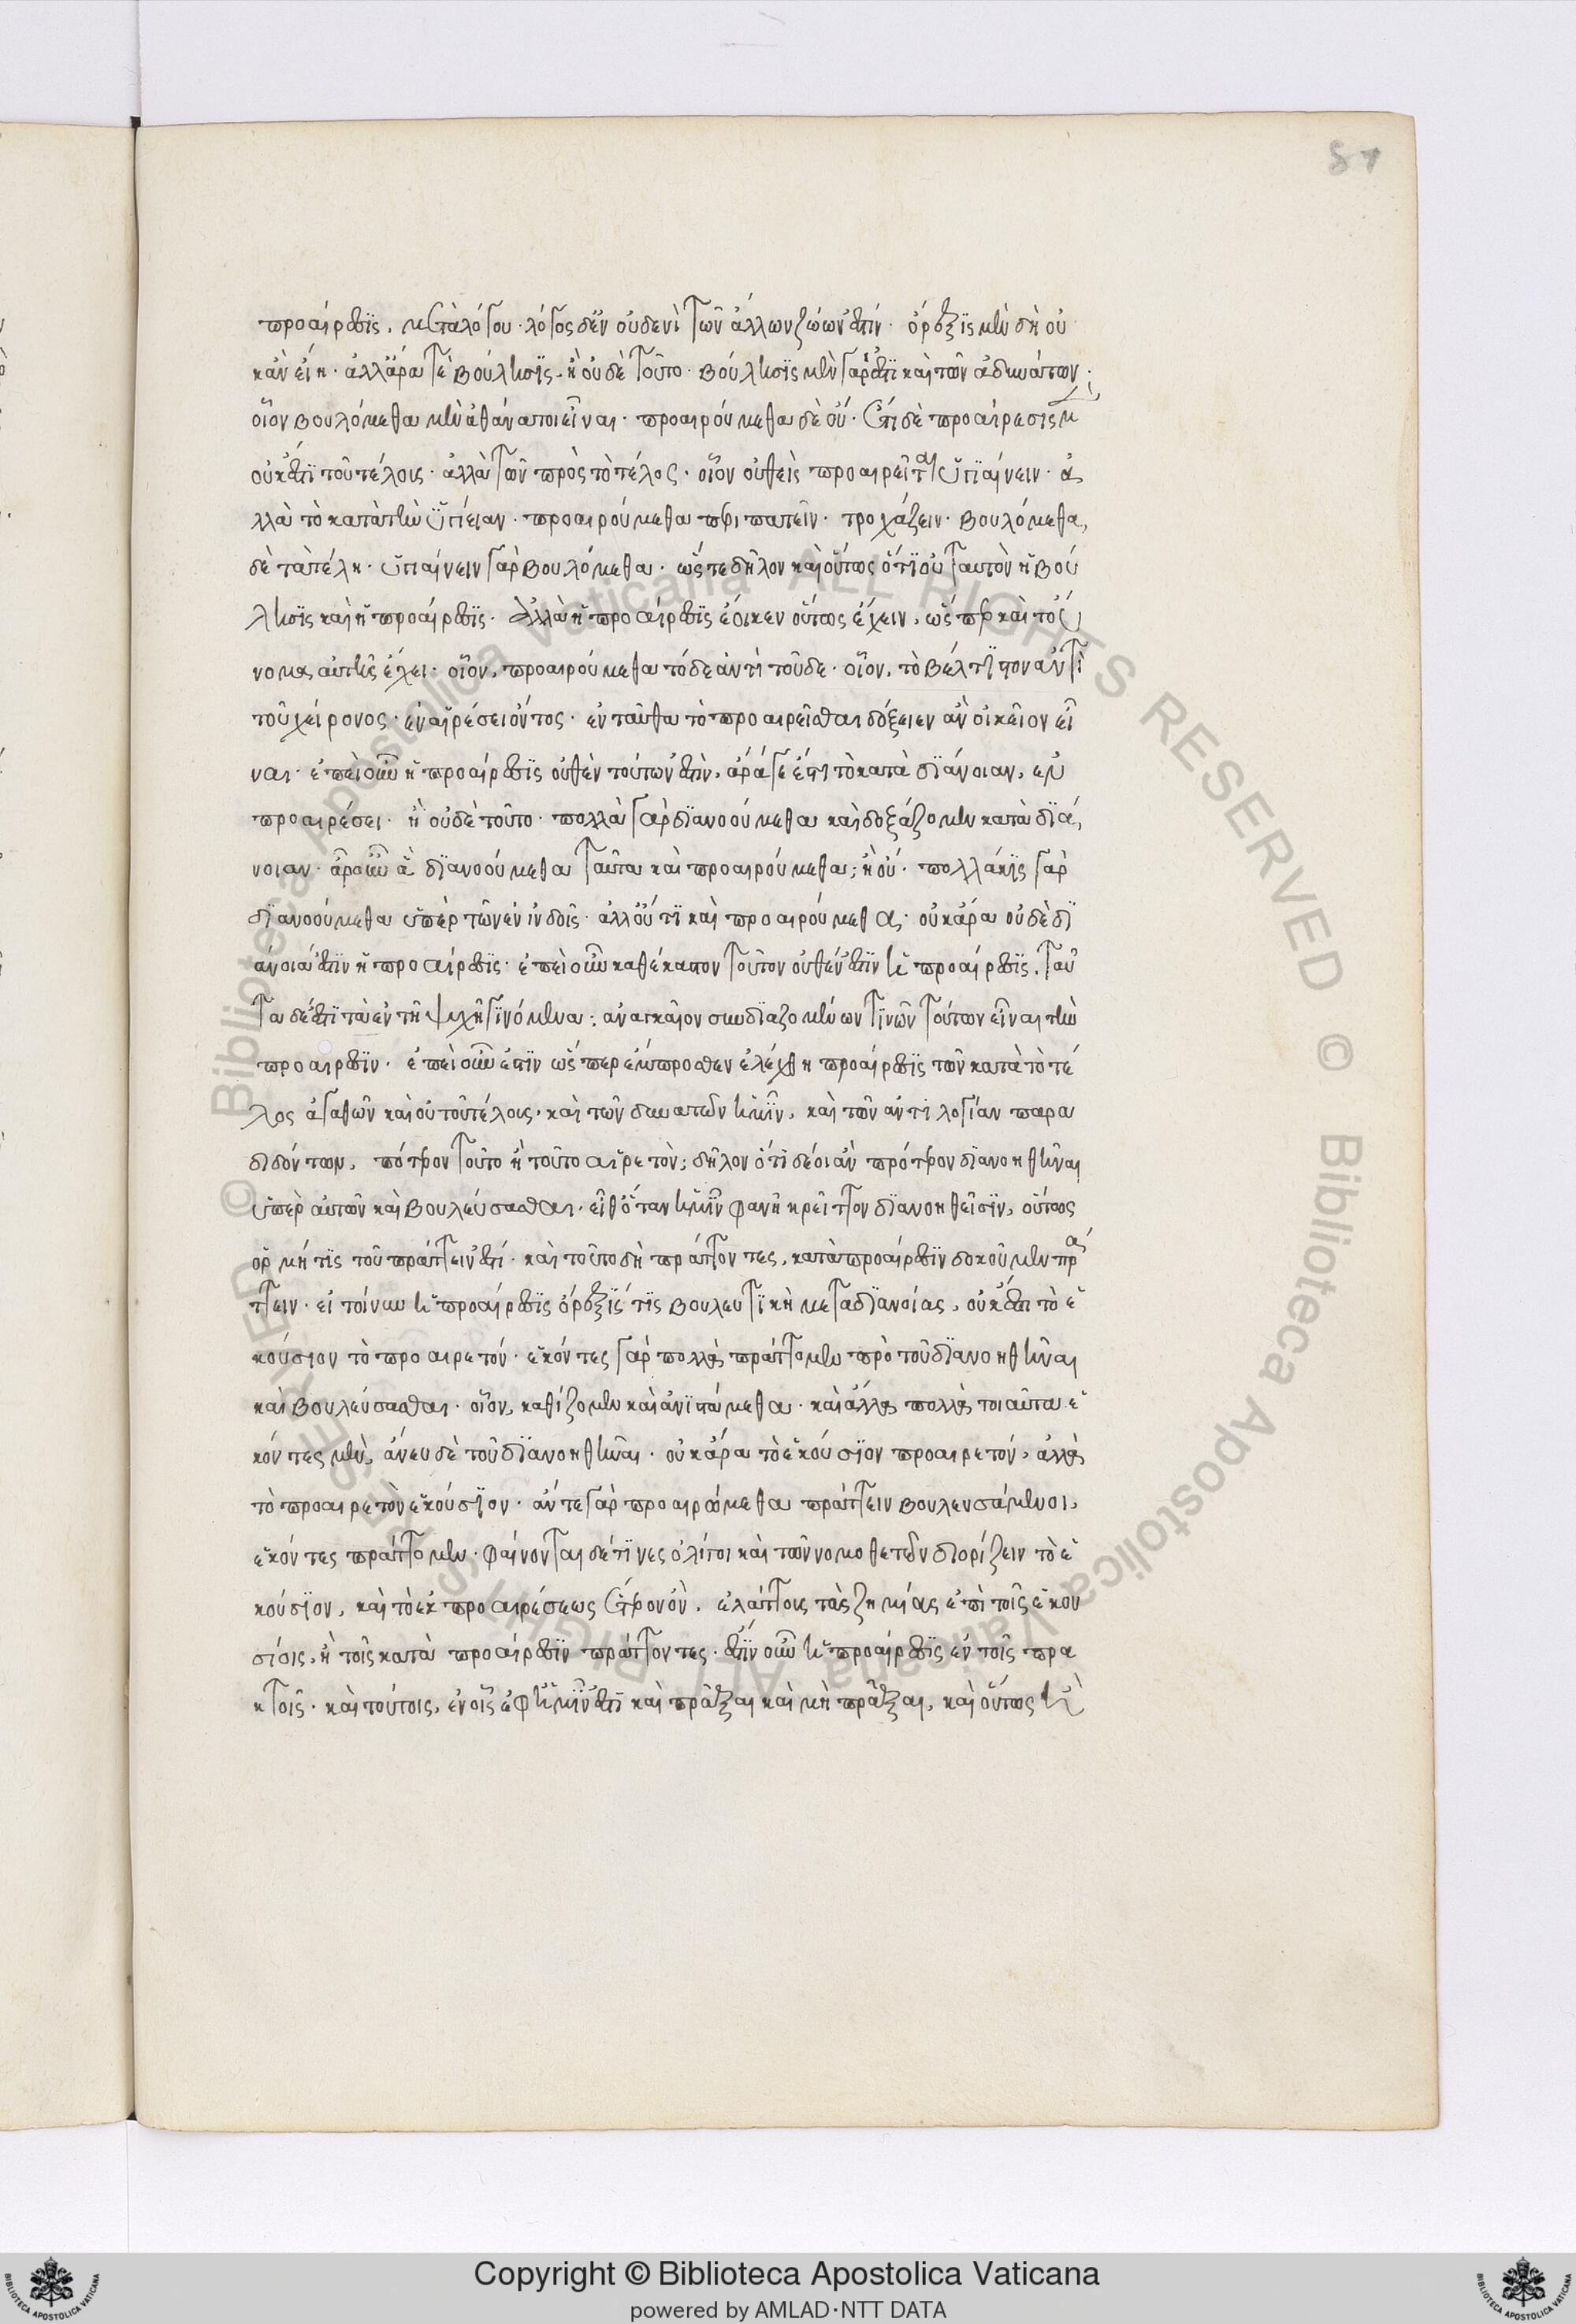 87
προαίρεσις, μετὰ λόγου· λόγος δ' ἐν οὐδενὶ τῶν ἄλλων ζώων ἐστίν· ὄρεξις μὲν δὴ οὐ
κἂν εἴη· ἀλλ' ἄρα γε βούλησις. ἢ οὐδὲ τοῦτο· βούλησις μὲν γάρ ἐστι καὶ τῶν ἀδυνάτων·
οἷον βουλόμεθα μὲν ἀθάνατοι εἶναι· προαιρούμεθα δὲ οὔ· ἔτι δὲ προαίρεσις μ
οὐκ ἔστι τοῦ τέλους· ἀλλὰ τῶν πρὸς τὸ τέλος· οἷον οὐθεὶς προαιρεῖται ὑγιαίνειν· ἀ
λλὰ τὸ κατὰ τὴν ὑγίειαν· προαιρούμεθα περιπατεῖν· τροχάζειν· βουλόμεθα
δὲ τὰ τέλη· ὑγιαίνειν γὰρ βουλόμεθα· ὥστε δῆλον καὶ οὕτως ὅτι οὐ ταυτὸν ἡ βού
λησις καὶ ἡ προαίρεσις· ἀλλὰ ἡ προαίρεσις ἔοικεν οὕτως ἔχειν, ὥσπερ καὶ τοὔ
νομα αὐτῆς ἔχει· οἷον, προαιρούμεθα τόδε ἀντὶ τοῦδε· οἷον, τὸ βέλτιστον ἀντὶ
τοῦ χείρονος· ἐν αἱρέσει ὄντος· ἐνταῦθα τὸ προαιρεῖσθαι δόξειεν ἂν οἰκεῖον εἶ
ναι· ἐπεὶ οὖν ἡ προαίρεσις οὐθὲν τούτων ἐστὶν, ἆρά γε ἔστι τὸ κατὰ διάνοιαν, ἐν
προαιρέσει· ἢ οὐδὲ τοῦτο· πολλὰ γὰρ διανοούμεθα καὶ δοξάζομεν κατὰ διά
νοιαν· ἆρ' οὖν ἃ διανοούμεθα ταῦτα καὶ προαιρούμεθα; ἢ οὔ· πολλάκις γὰρ
διανοούμεθα ὑπὲρ τῶν ἐν ἰνδοῖς· ἀλλ' οὔτι καὶ προαιρούμεθα· οὐκ ἄρα οὐδὲ δι
άνοια ἐστὶν ἡ προαίρεσις· ἐπεὶ οὖν καθ' ἕκαστον τούτων οὐθέν ἐστιν ἡ προαίρεσις, ταῦ
τα δέ ἐστι τὰ ἐν τῇ ψυχῇ γινόμενα; ἀναγκαῖον συνδυαζομένων τινῶν τούτων εἶναι τὴν
προαίρεσιν· ἐπεὶ οὖν ἐστὶν ὥσπερ ἔμπροσθεν ἐλέχθη προαίρεσις τῶν κατὰ τὸ τέ
λος ἀγαθῶν καὶ οὐ τοῦ τέλους· καὶ τῶν δυνατῶν ἡμῖν, καὶ τῶν ἀντιλογίαν παρα
διδόντων, πότερον τοῦτο ἢ τοῦτο αἱρετόν; δῆλον ὅτι δέοι ἂν πρότερον διανοηθῆναι
ὑπὲρ αὐτῶν καὶ βουλεύσασθαι· εἶθ' ὅταν ἡμῖν φανῇ κρεῖττον διανοηθεῖσιν, οὕτως
ὁρμή τις τοῦ πράττειν ἐστί· καὶ τοῦτο δὴ πράττοντες, κατὰ προαίρεσιν δοκοῦμεν πρά
ττειν· εἰ τοίνυν ἡ προαίρεσις ὄρεξίς τις βουλευτικὴ μετὰ διανοίας, οὐκ ἔστι τὸ ἑ
κούσιον τὸ προαιρετόν· ἑκόντες γὰρ πολλὰ πράττομεν πρὸ τοῦ διανοηθῆναι
καὶ βουλεύσασθαι· οἷον, καθίζομεν καὶ ἀνιστάμεθα· καὶ ἄλλα πολλὰ τοιαῦτα ἑ
κόντες μὲν, ἄνευ δὲ τοῦ διανοηθῆναι· οὐκ ἄρα τὸ ἑκούσιον προαιρετόν, ἀλλὰ
τὸ προαιρετὸν ἑκούσιον· ἄν τε γὰρ προαιρώμεθα πράττειν βουλευσάμενοι,
ἑκόντες πράττομεν· φαίνονται δέ τινες ὀλίγοι καὶ τῶν νομοθετῶν διορίζειν τὸ ἑ
κούσιον, καὶ τὸ ἐκ προαιρέσεως ἕτερον ὂν, ἐλάττους τὰς ζημίας ἐπὶ τοῖς ἑκου
σίοις, ἢ τοῖς κατὰ προαίρεσιν πράττοντες· ἔστιν οὖν ἡ προαίρεσις ἐν τοῖς πρα
κτοῖς· καὶ τούτοις, ἐν οἷς ἐφ' ἡμῖν ἐστὶ καὶ πρᾶξαι καὶ μὴ πρᾶξαι, καὶ οὕτως ἢ
© Biblioteca Apostolica Vaticana ALL RIGHTS RESERVED © Biblioteca Apostolica Vaticana ALL RIGHTS RESERVED
Copyright © Biblioteca Apostolica Vaticana
powered by AMLAD·NTT DATA
BIBLIOTECA APOSTOLICA VATICANA
BIBLIOTECA APOSTOLICA VATICANA